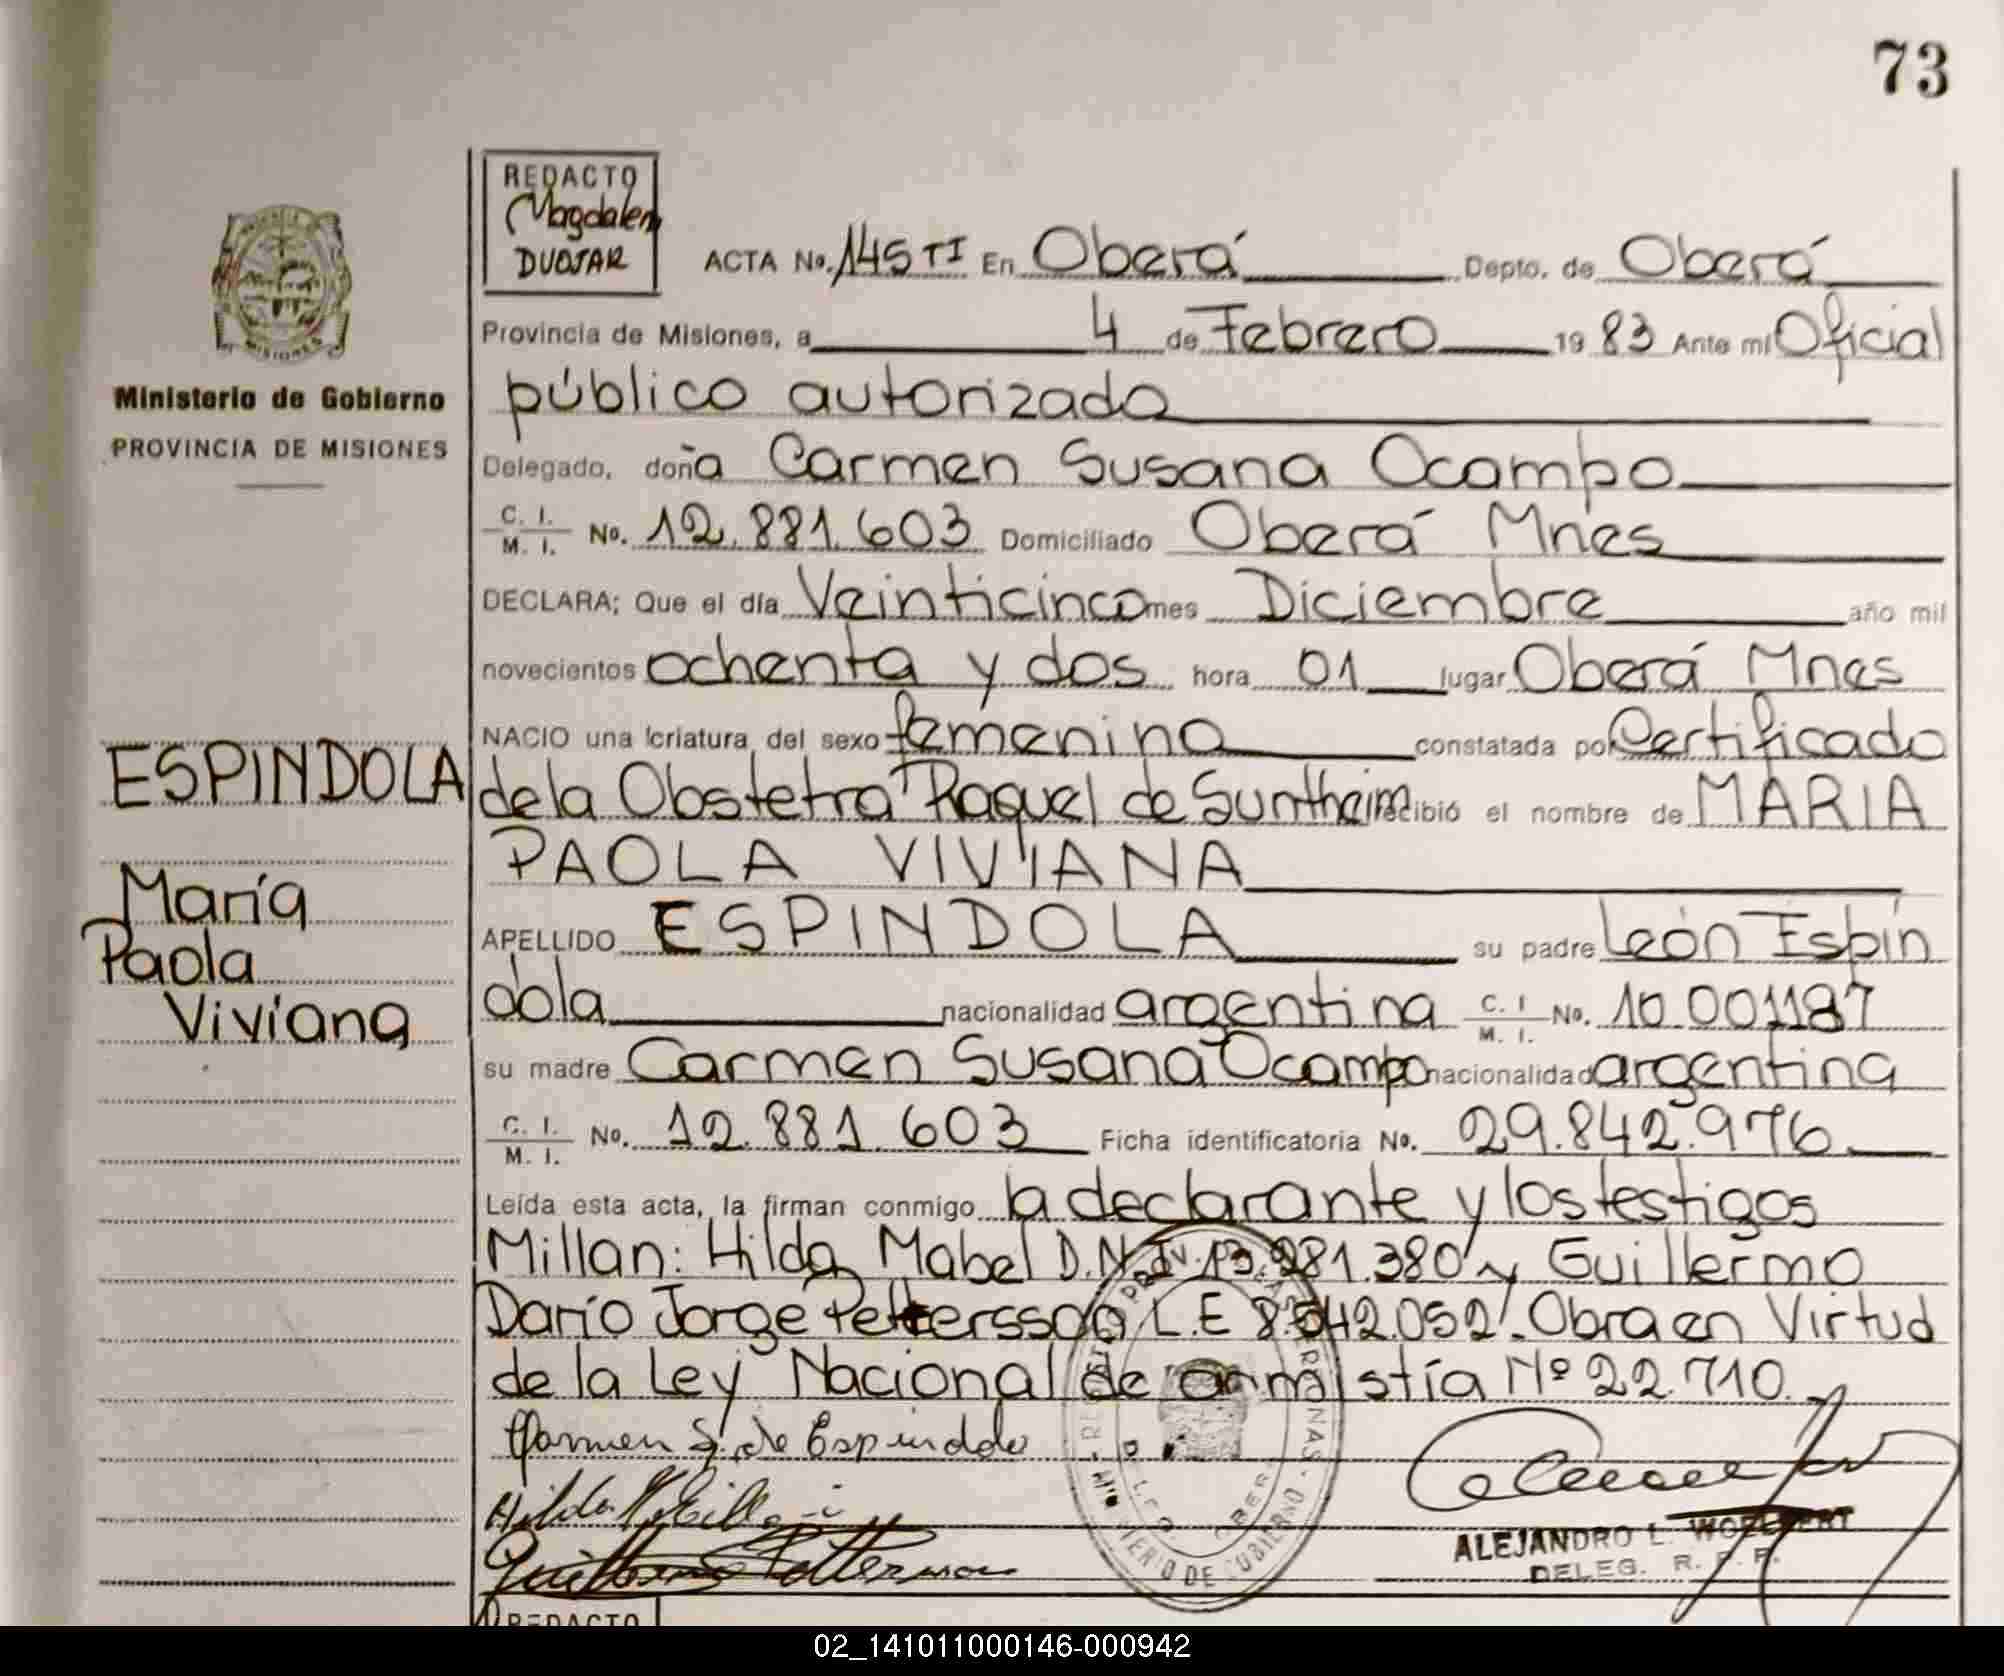 73
REDACTO
Magdalen
DUOJAR
ACTA No. 145 TI En Oberá Depto. de Oberá
Provincia de Misiones, a 4 de Febrero 1983 Ante mi Oficial
público autorizado
Ministerio de Gobierno
PROVINCIA DE MISIONES
Delegado, doña Carmen Susana Ocampo
C. I. M. I. No. 12.881.603 Domiciliado Oberá Mnes
DECLARA; Que el día Veinticinco mes Diciembre año mil
novecientos ochenta y dos hora 01 lugar Oberá Mnes
NACIO una criatura del sexo femenino constatada por Certificado
de la Obstetra Raquel de Suntheim recibió el nombre de MARIA
PAOLA VIVIANA
ESPINDOLA
María
Paola
Viviana
APELLIDO ESPINDOLA su padre León Espin
dola nacionalidad argentina C. I. M. I. No. 10.001187
su madre Carmen Susana Ocampo nacionalidad argentina
C. I. M. I. No. 12.881.603 Ficha identificatoria No. 29.842.976
Leída esta acta, la firman conmigo la declarante y los testigos
Millan: Hilda Mabel D.N.I. 13.981.380 y Guillermo
Darío Jorge Pettersson L.E 8.542.052. Obra en Virtud
de la Ley Nacional de amnistía Nº 22.710.
Carmen S. de Espindola
ALEJANDRO L. WOELFERT
DELEG. R. P. P.
MINISTERIO DE GOBIERNO
REDACTO
02_141011000146-000942